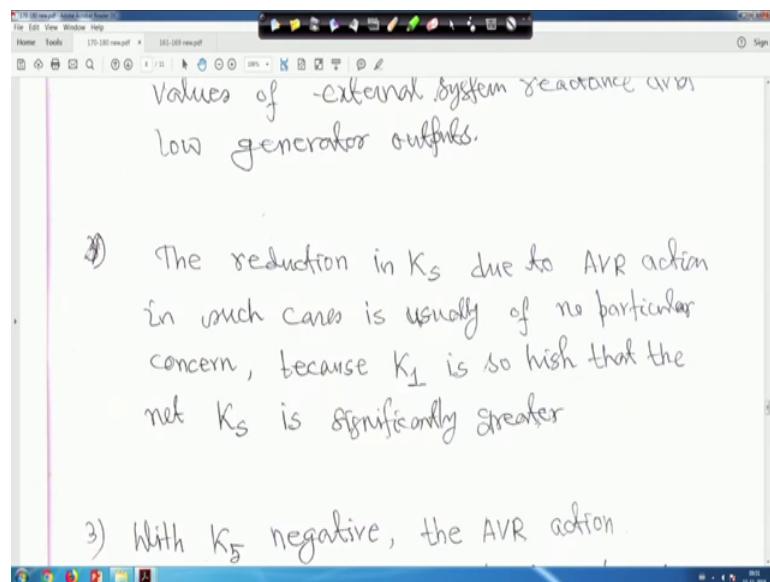 170-180 new.pdf - Adobe Acrobat Reader DC
File Edit View Window Help
Home Tools 170-180 new.pdf × 161-169 new.pdf Sign
/ 11
values of external system reactance and
low generator outputs.
The reduction in Ks due to AVR action
in such cases is usually of no particular
concern, because K1 is so high that the
net Ks is significantly greater
3) With K5 negative, the AVR action